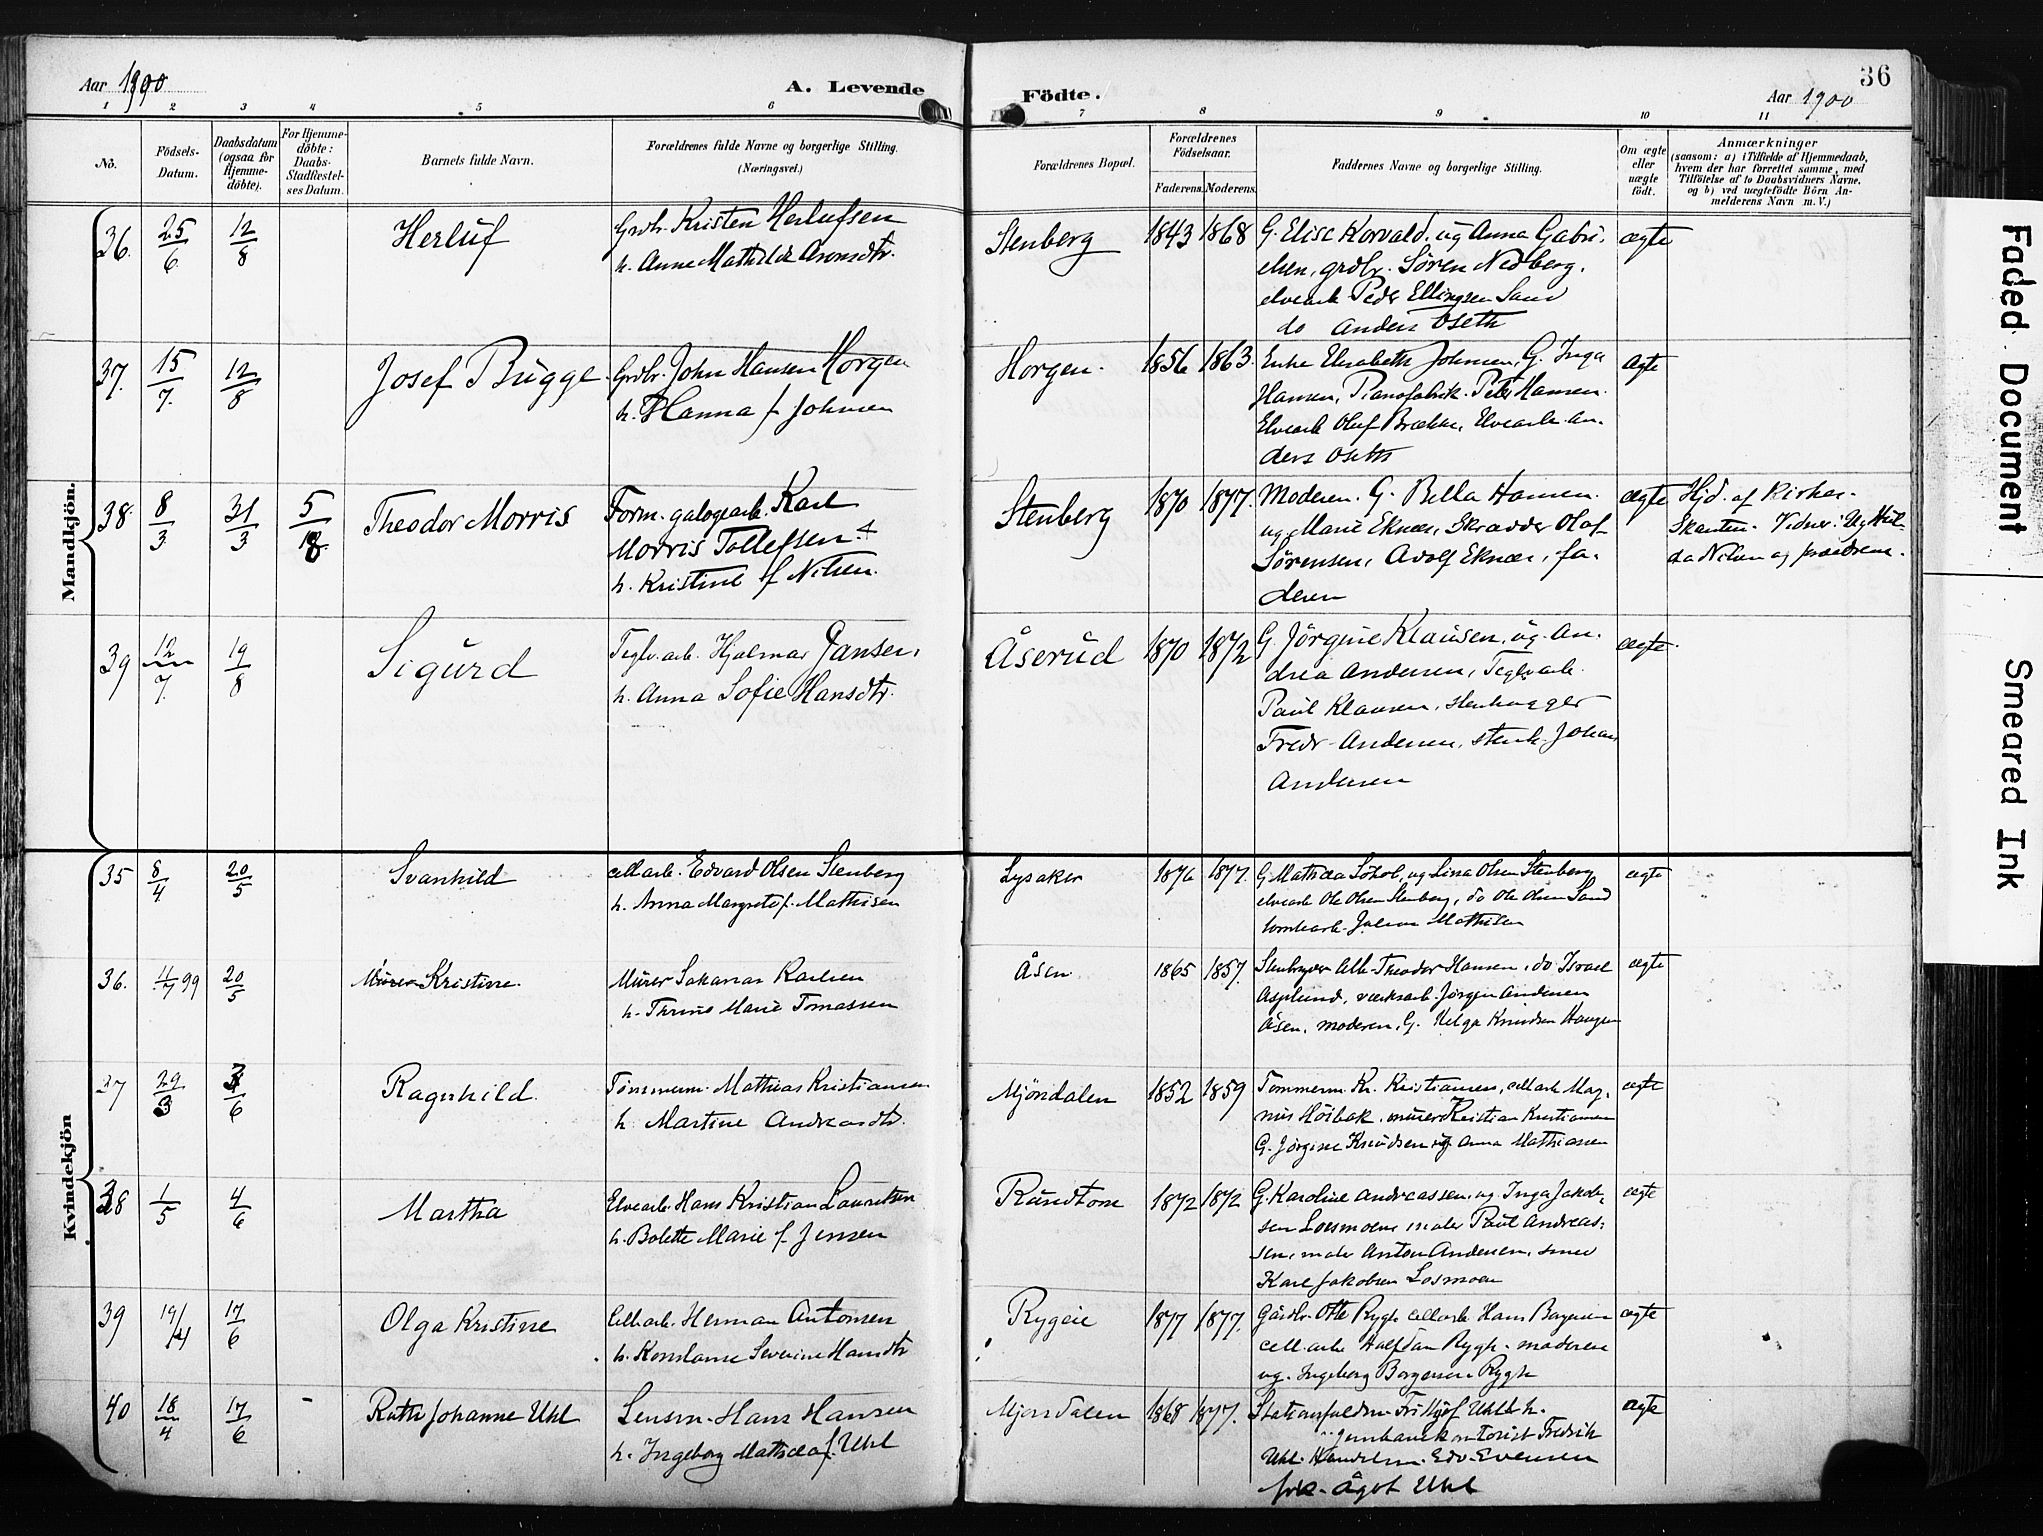 Aar 1900
A. Levende
Födte.
Aar 1900
36
1 2 3 4 5 6 7 8 9 10 11
No.
Födsels-
Datum.
Daabsdatum
(ogsaa for
Hjemme-
döbte).
For Hjemme-
döbte:
Daabs-
Stadfæstel-
ses Datum.
Barnets fulde Navn.
Forældrenes fulde Navne og borgerlige Stilling.
(Næringsvei.)
Forældrenes Bopæl.
Forældrenes
Födselsaar.
Faderens. Moderens.
Faddernes Navne og borgerlige Stilling.
Om ægte
eller
uægte
födt.
Anmærkninger
(saasom: a) i Tilfælde af Hjemmedaab,
hvem der har forrettet samme, med
Tilföielse af to Daabsvidners Navne,
og b) ved uægtefödte Börn An-
melderens Navn m. V.)
Mandkjön.
36. 25/6 12/8 Herluf
Grdbr. Kristen Herlufsen
h. Anne Mathilde Aronsdtr.
Stenberg 1843 1868
G. Elise Korvald og Anna Gabri-
elsen, grdbr. Sören Nedberg,
elvearb. Peder Ellingsen Sand
do Anders Oseth
ægte
37. 15/7 12/8 Josef Bugge
Grdbr. John Hansen Horgen
h. Hanna f. Johnsen
Horgen 1856 1863
Enke Elisabeth Johnsen, G. Inga
Hansen, Pianofabrik. Peter Hansen.
Elvearb Oluf Brække, Elvearb. An-
ders Oseth
ægte
38. 8/3 31/3 5/8 Theodor Morris
Form. galogearb. Karl
Morris Tollefsen
h. Kristine f. Nilsen.
Stenberg 1870 1877.
Moderen. G. Bella Hansen
og Marie Eknæs, Skrædder Olaf
Sörensen, Adolf Eknæs, fa-
deren
ægte
Hjd. af Kirkes.
Vidner: Ug. Hul-
da Nilsen og forældrene.
39 12/7 19/8 Sigurd
Teglv.arb. Hjalmar Jansen,
h. Anna Sofie Hansdtr.
Åserud 1870 1872
G. Jörgine Klausen, og An-
drea Andersen, Teglvarb.
Paul Klausen, stenhugger
Fredr. Andersen, stenh. Johan
Andersen
ægte.
Kvindekjön
35 8/4 20/5 Svanhild
cellarb. Edvard Olsen Stenberg
h. Anna Margrete f. Mathisen
Lysaker 1876 1877.
G. Mathilda Söhol, og Lina Olsen Stenberg
elvearb Ole Olsen Stenberg, do Ole Olsen Sand
tomtearb. Julius Mathisen
ægte
36. 4/7 99 20/5 Kristine.
Murer Sakarias Karlsen
h. Thrine Marie Tomassen
Åsen 1865 1857.
Stenhugger Alb. Theodor Hansen, do Israel
Asplund, værksarb. Jörgen Andersen
Åsen, moderen, G. Helga Knudsen Haugen
ægte
37 29/3 3/6 Ragnhild.
Tömmerm. Mathias Kristiansen
h. Martine Andreasdtr.
Mjöndalen 1852 1859
Tömmerm. Kr. Kristiansen, cellarb Mag-
nus Höibak, murer Kristian Kristiansen
G. Jörgine Knudsen og Anna Mathiasen
ægte
38 1/5 4/6 Martha
Elvearb. Hans Kristian Lauritsen
h. Bolette Marie f. Jensen
Rundtom 1872 1872
G. Karoline Andreassen, og Inga Jakob-
sen Losmoen, maler Paul Andreas-
sen, maler Anton Andersen, smed
Karl Jakobsen Losmoen
ægte
39 19/4 17/6 Olga Kristine
Cellarb. Herman Antonsen
h. Konstanse Severine Hansdtr
Rygeie 1877 1877.
Gårdbr. Otto Rygh, cellarb Hans Borgersen
cell.arb. Halfdan Rygh. moderen
og. Ingeborg Borgersen Rygh
ægte
40 18/4 17/6 Ruth Johanne Uhl
Hans Hansen
h. Ingeborg Mathilda f. Uhl
Mjöndalen 1868 1877.
Stationsfuldm. Frithjof Uhl
Jernbanekontorist Fredrik
Uhl. Handelsm. Edv. Evensen
frk. Ågot Uhl
ægte
Faded Document
Smeared Ink